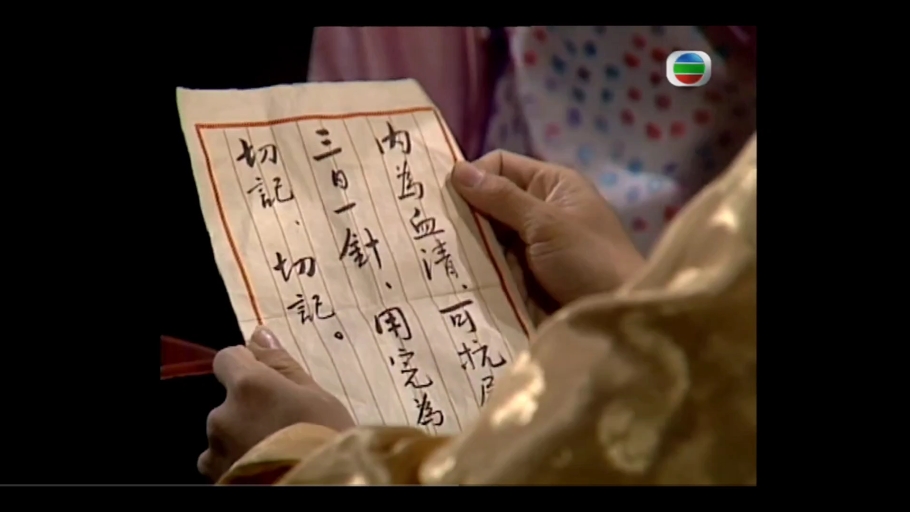 内為血清、可抗
三日一針、用完為
切記、切記。